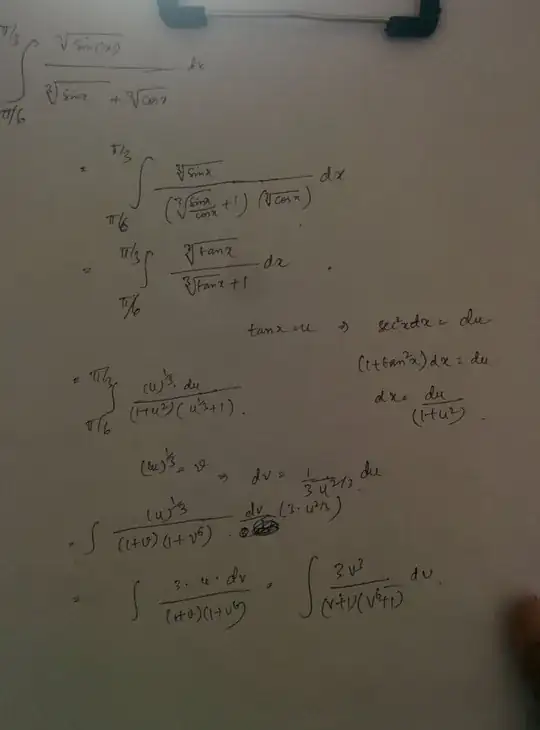 ∫_{π/6}^{π/3} ∛(sin(x)) / (∛(sinx) + ∛(cosx)) dx
= ∫_{π/6}^{π/3} ∛(sinx) / ((∛(sinx/cosx) + 1) (∛(cosx))) dx
= ∫_{π/6}^{π/3} ∛(tanx) / (∛(tanx) + 1) dx
tanx = u ⇒ sec²x dx = du
(1+tan²x) dx = du
dx = du / (1+u²)
= ∫_{π/6}^{π/3} (u)^{1/3} · du / ((1+u²)(u^{1/3}+1))
(u)^{1/3} = v ⇒ dv = 1 / (3 u^{2/3}) du
= ∫ (u)^{1/3} / ((1+v)(1+v⁶)) · dv (3 · u^{2/3})
= ∫ 3 · u · dv / ((1+v)(1+v⁶)) = ∫ 3v³ / ((v+1)(v⁶+1)) dv